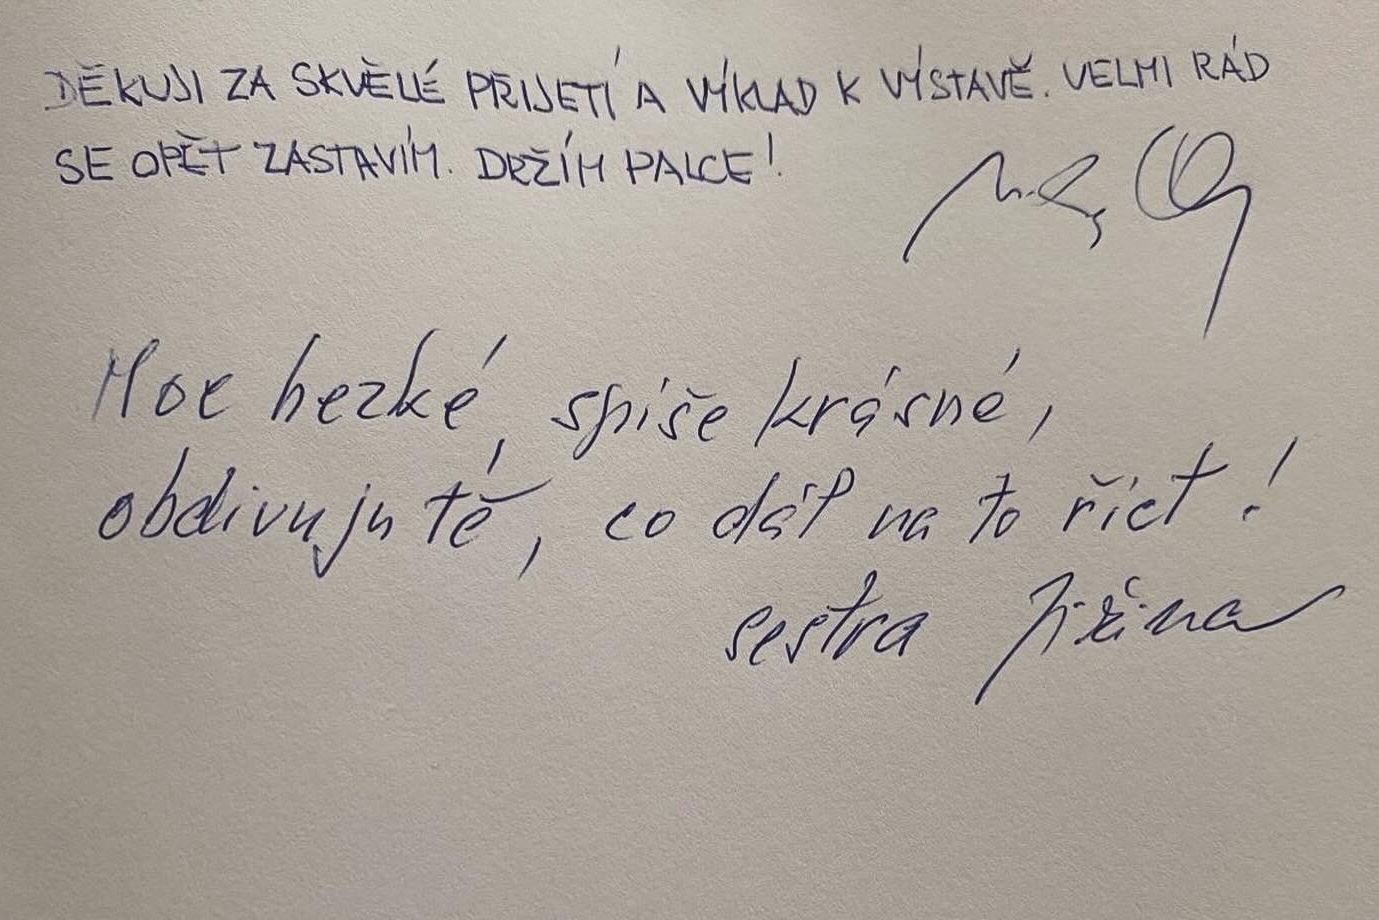 DĚKUJI ZA SKVĚLÉ PŘIJETÍ A VÝKLAD K VÝSTAVĚ. VELMI RÁD
SE OPĚT ZASTAVÍM. DRŽÍM PALCE!
Moc hezké, spíše krásné,
obdivuju tě, co dál na to říct!
sestra Jiřina